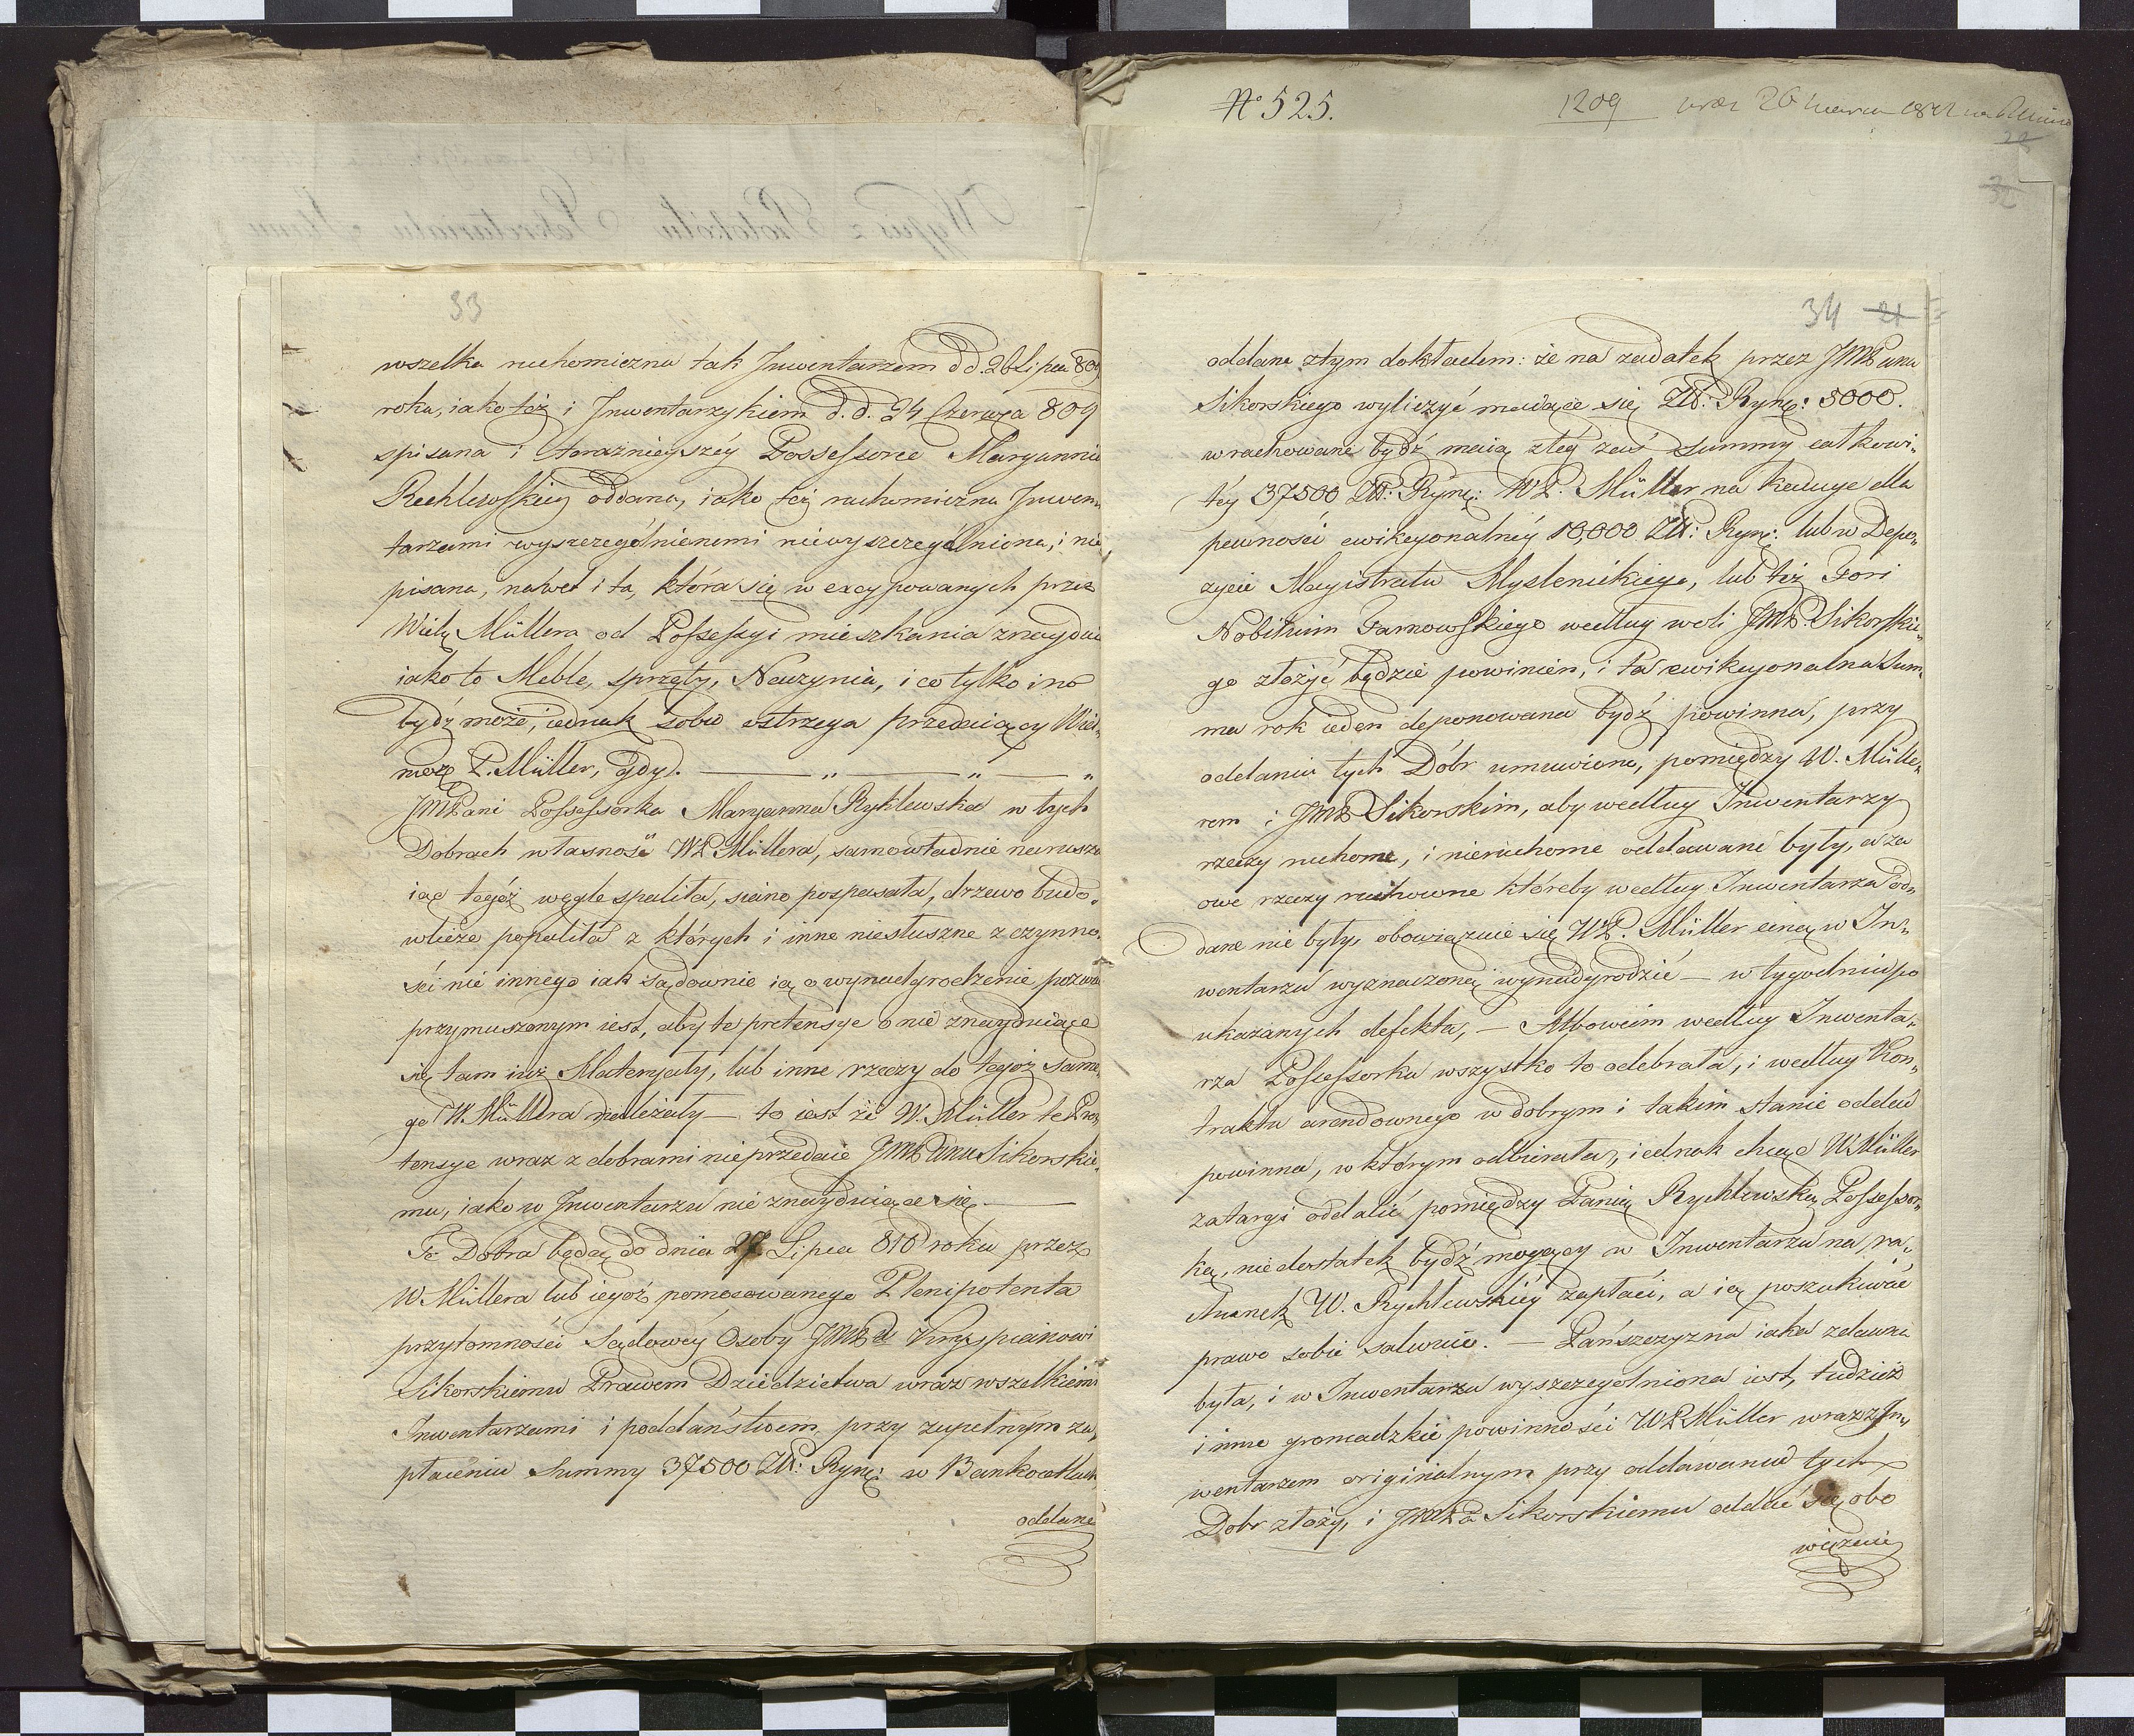 N° 525.
1209
33
wszelka ruchomiczna tak Inwentarzem d d. 26 Lipca 809
roku, iako też i Inwentarzykiem d. d. 24 Czerwca 809
spisana i teraznieyszéy Possessorce Maryannie
Rechlewskiey oddana, iako też ruchomiczna Inwen„
tarzami wyszczególnionemi niewyszczególniona, i nie
pisana, nawet i ta, która się w excypowanych przez
Wielg Müllera od Possessyi mieszkania znayduie
iako to Meble, sprzęty, Naczynia, i co tylko ino
bydź może, iednak sobie ostrzega przedaiący Wiel„
może P. Müller, gdy). — „ — „ — „
JMPani Possessorka Maryanna Ryklewska w tych
Dobrach własność WP Müllera, samowładnie narusza
iąc tegóż węgle spaliła, siano pospasała, drzewo budo„
wlicze popaliła z których i inne niesłuszne z czynno„
ści nie innego iak sądownie ią o wynadgrodzenie pozwać
przymuszonym iest, aby te pretensye o nie znayduiące
się tam iuż Materyały, lub inne rzeczy do tegóż same„
go W. Müllera należały — to iest że W. Müller te Pre„
tensye wraz z dobrami nieprzedaie JMPanu Sikorskie„
mu, iako w Inwentarzu nie znayduiące się. —
Te Dobra będą do dnia 27. Lipca 810 roku przez
W Müllera lub iegóż pomocowanego Plenipotenta
przytomności Sądowéy Osoby JMPa Kryspianowi
Sikorskiemu Prawem Dziedzictwa wraz wszelkiemi
Inwentarzami i poddaństwem przy zupełnym za„
płaceniu Summy 37500 Zł: Ryn: w Bankocetlach
oddane
34 21
oddane ztym dokładem: że na zadatek przez JMPana
Sikorskiego wyliczyć maiące się Zł: Ryn: 5000.
wrachowane bydź maią ztéy zaś Summy całkowi„
téy 37500 Zł: Ryn: WP. Müller na kaucye dla
pewności ewikcyonalnéy 10,000 Zł: Ryn: lub w Depo„
zycie Magistratu Myslenickiego, lub też Fori
Nobilium Tarnowskiego według woli JMP Sikorskie„
go złożyć będzie powinien, i ta ewikcyonalna Sum„
ma rok ieden deponowana bydź powinna, przy
oddaniu tych Dóbr umuwiono, pomiędzy W. Mülle„
rem i JMP Sikorskim, aby według Inwentarzy
rzeczy ruchome, i nieruchome oddawane były, a za
owe rzeczy ruchowne któreby według Inwentarza od„
dane nie były, obowiązuie się WP. Müller cenę w In„
wentarzu wyznaczoną wynadgrodzić — w tygodniu po
ukazanych defektu, — Albowiem według Inwenta„
rza Possessorka wszystko to odebrała, i według Kon„
traktu arendownego w dobrym i takim stanie oddać
powinna, w którym odbierała, iednak chcąc W Müller
zatargi oddalić pomiędzy Panią Rychlewską Possessor„
ką, niedostatek bydź mogący w Inwentarzu na ra„
chunek W. Rychlewskiéy zapłaci, a ią poszukiwać
prawo sobie salwuie. — Pańszczyzna iaka zdawna
była, i w Inwentarzu wyszczegolniona iest, tudzież
i inne gromadzkie powinności WP Müller wraz z In„
wentarzem originalnym przy oddawaniu tych
Dobr złoży, i JMPa Sikorskiemu oddać się obo
wiązuie